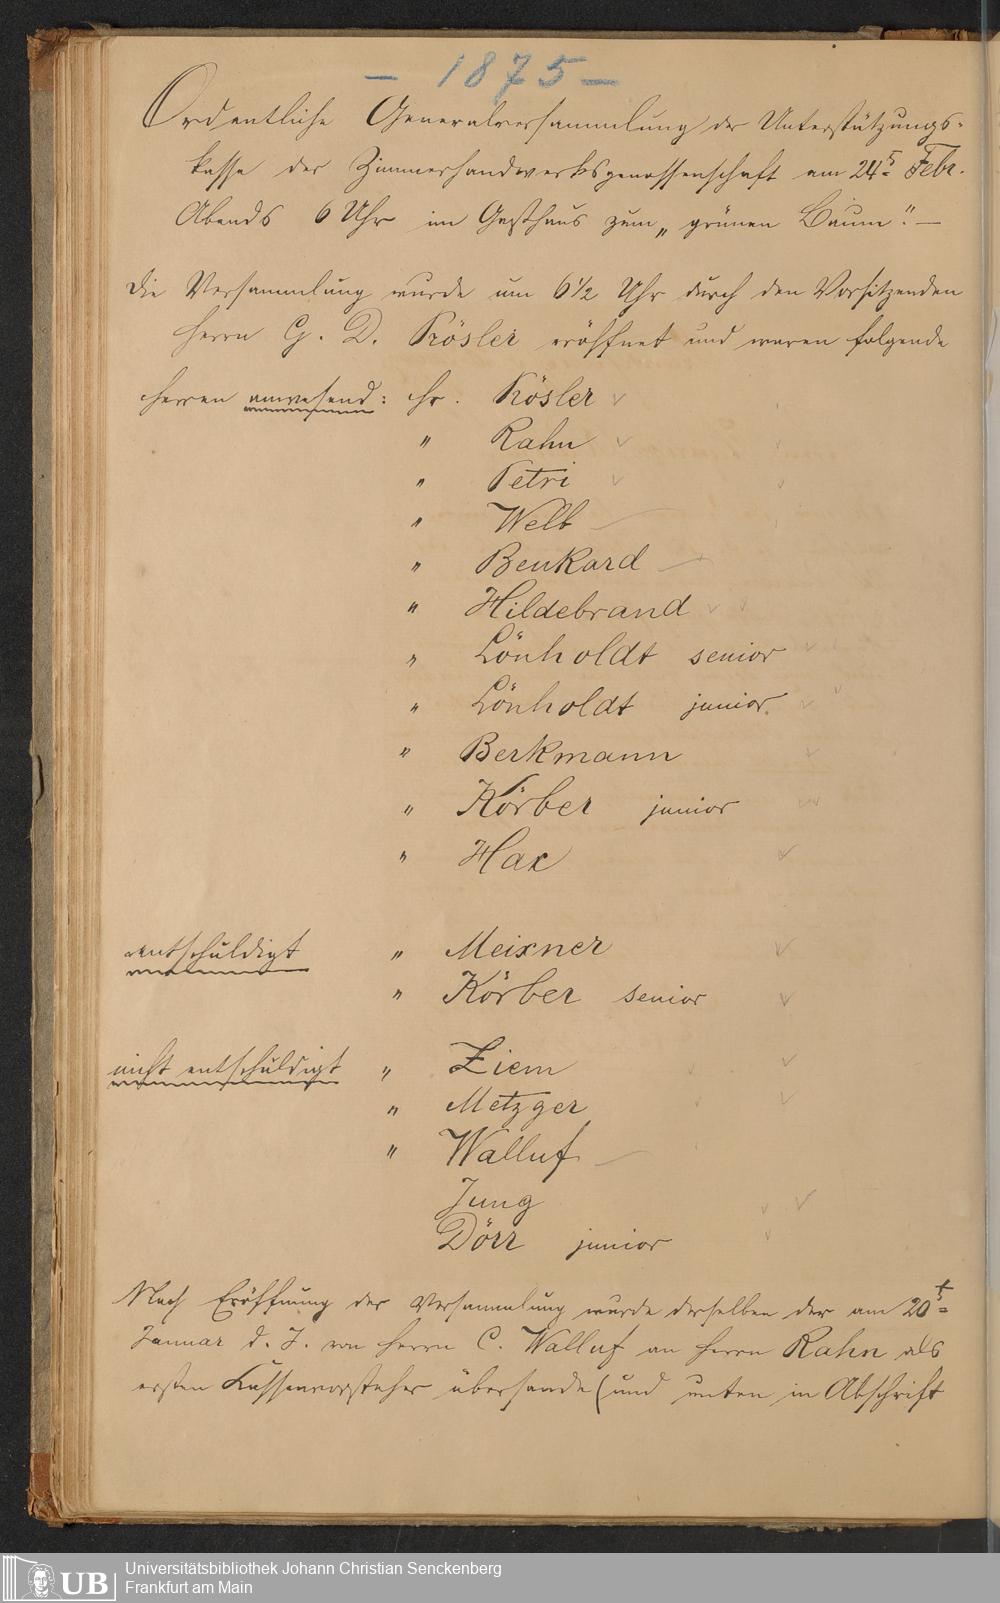 - 1875 -
Ordentliche Generalversammlung der Unterstützungs-
kasse der Zimmerhandwerksgenossenschaft am 24t Febr.
Abends 6 Uhr im Gasthaus zum „grünen Baum“. —
Die Versammlung wurde um 6½ Uhr durch den Vorsitzenden
Herrn G. D. Kösler eröffnet und waren folgende
Herren anwesend: Hr. Kösler
" Rahn
" Petri
" Welb
" Benkard
" Hildebrand
" Lönholdt senior
" Lönholdt junior
" Berkmann
" Körber junior
" Hax
entschuldigt " Meixner
" Körber senior
nicht entschuldigt " Ziem
" Metzger
" Walluf
Jung
Dörr junior
Nach Eröffnung der Versammlung wurde derselben der am 20t
Januar d. J. von Herrn C. Walluf an Herrn Rahn als
ersten Kassenvorsteher übersandte (und unten in Abschrift
Universitätsbibliothek Johann Christian Senckenberg
Frankfurt am Main
UB